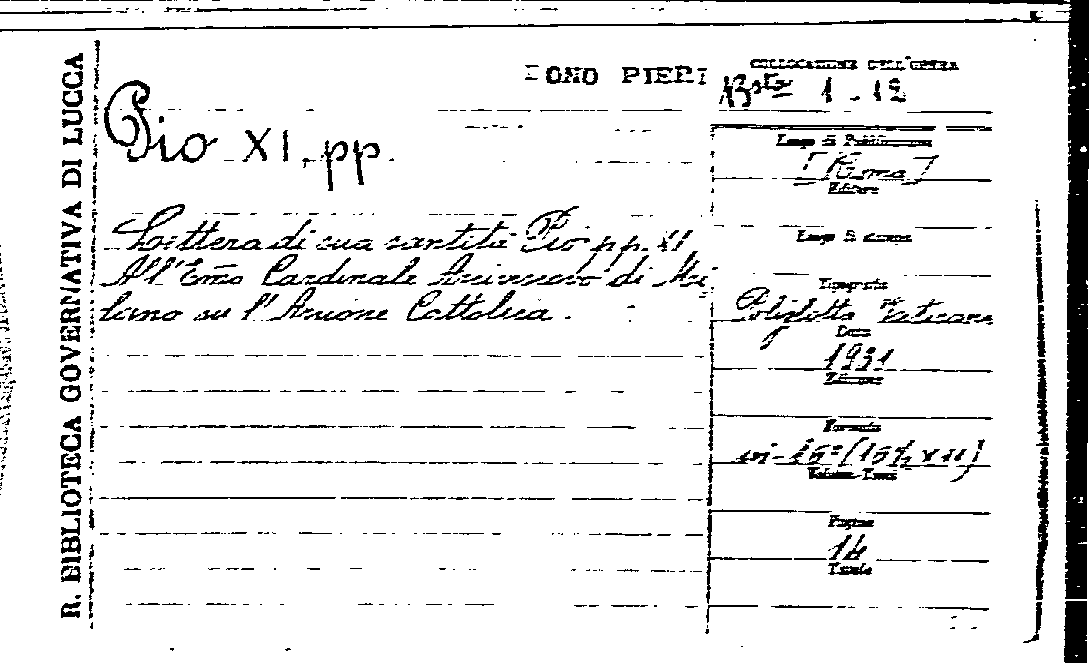 R. BIBLIOTECA GOVERNATIVA DI LUCCA
DONO PIERI
COLLOCAZIONE DELL'OPERA
1.12
Pio XI, pp.
Luogo di Pubblicazione
[Roma]
Editore
Lettera di sua santità Pio pp. XI
All'Emo Cardinale Arcivescovo di Mi
lano su l'Azione Cattolica.
Luogo di stampa
Tipografia
Poliglotta Vaticana
Data
1931
Edizione
Formato
in-16°
Volume
Pagine
14
Tavole